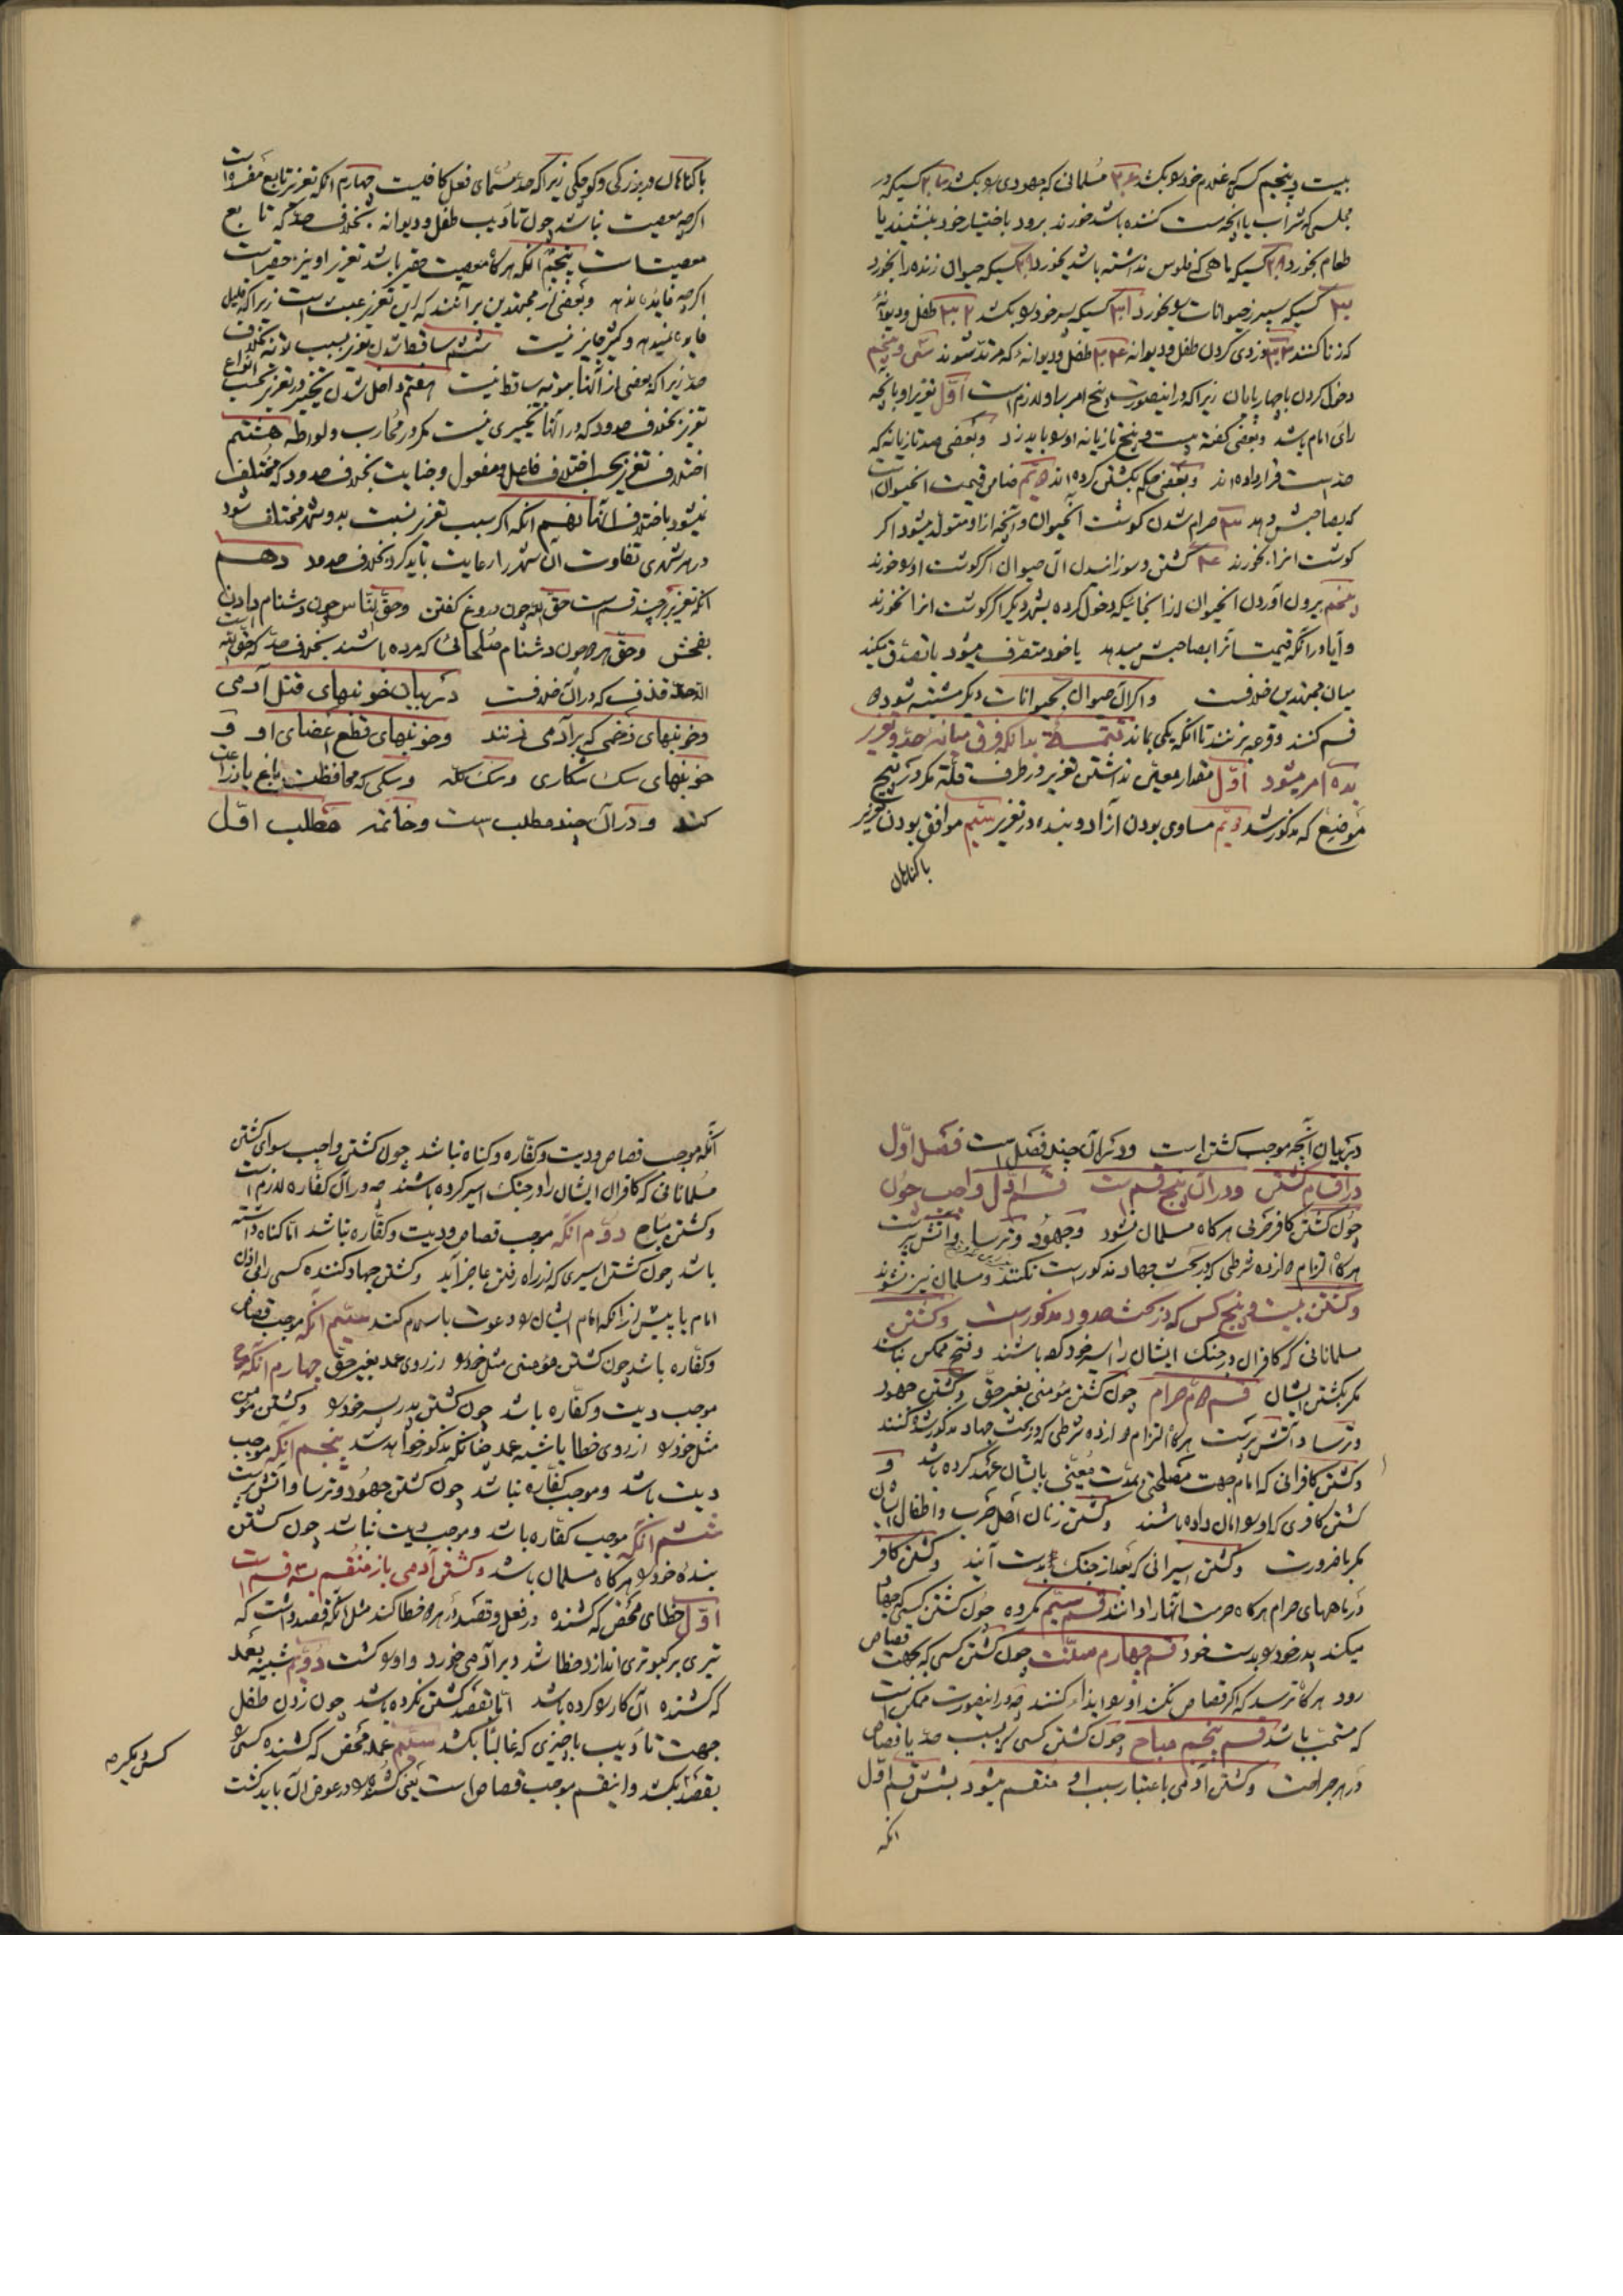 بیست و پنجم کسی که غلام خود را بکشد ۲۶ مسلمانی که جهودی را بکشد ۲۷ کسیکه در
مجلسی که شراب یا آنچه مست کننده باشد خورند برود باختیار خود بنشیند یا
طعام بخورد ۲۸ کسیکه ماهی که فلوس نداشته باشد بخورد ۲۹ کسیکه حیوان زنده را بخورد
۳۰ کسیکه سپرز حیوانات را بخورد ۳۱ کسیکه پسر خود را بکشد ۳۲ طفل و دیوانهٔ
که زنا کنند ۳۳ دزدی کردن طفل و دیوانه ۳۴ طفل و دیوانهٔ که مرتد شوند سی و پنجم
دخول کردن با چهارپایان زیرا که درینصورت پنج امر بر او لازم است اول تعزیر او بآنچه
رای امام باشد و بعضی گفته بیست و پنج تازیانه او را باید زد و بعضی صد تازیانه که
حد است قرار داده‌اند و بعضی حکم بکشتن کرده‌اند دویم ضامن قیمت آنحیوان است
که بصاحبش دهد ۳ حرام شدن گوشت آنحیوان و آنچه ازو متولد میشود اگر
گوشت آنرا بخورند ۴ کشتن و سوزانیدن آن حیوان اگر گوشت او را خورند
پنجم بیرون آوردن آنحیوان از آنجائیکه دخول کرده بشهر دیگر اگر گوشت آنرا نخورند
و آیا در آنکه قیمت آنرا بصاحبش میدهد یا خود متصرف میشود یا تصدق میکند
میان مجتهدین خلافست و اگر آن حیوان بحیوانات دیگر مشتبه شود دو
قسم کنند و قرعه زنند تا آنکه یکی بماند تتمه بدانکه فرق میانه حد و تعزیر
بده امر میشود اول مقدار معین نداشتن تعزیر در طرف قلة مگر در پنج
موضع که مذکور شد دویم مساوی بودن آزاد و بنده در تعزیر سیم موافق بودن تعزیر
باگناهان
باگناهان در بزرگی و کوچکی زیرا که حد مسمای فعل کافیست چهارم آنکه تعزیر تابع مفسده است
اگرچه معصیت نباشد چون تأدیب طفل و دیوانه بخلاف حد که تابع
معصیت است پنجم آنکه هرگاه معصیت حقیر باشد تعزیر او نیز حقیر است
اگرچه فایده ندهد و بعضی از مجتهدین برآنند که این تعزیر عبث است زیرا که قلیل
فایده نمیدهد و کثیر جایز نیست ششم ساقط شدن تعزیر بسبب توبه بخلاف
حد زیرا که بعضی از آنها بتوبه ساقط نیست هفتم داخل شدن تخییر در تعزیر بحسب انواع
تعزیر بخلاف حدود که در آنها تخییری نیست مگر در محارب و لواطه هشتم
اختلاف تعزیر بحسب اختلاف فاعل و مفعول و جنایت بخلاف حدود که مختلف
نمیشود باختلاف آنها نهم آنکه اگر سبب تعزیر نسبت بدو شهر مختلف شود
در هر شهری تفاوت آن شهر را رعایت باید کرد بخلاف حدود دهم
آنکه تعزیر بر چند قسم است حق الله چون دروغ گفتن و حق الناس چون دشنام دادن
بفحش و حق هر دو چون دشنام صلحائی که مرده باشند بخلاف حد که حق الله است
الا حد قذف که در آن خلافست در بیان خونبهای قتل آدمی
و خونبهای زخمی که بر آدمی زنند و خونبهای قطع اعضای او و
خونبهای سگ شکاری و سگ گله و سگی که محافظت باغ یا زراعت
کند و در آن چند مطلب است و خاتمه مطلب اول
در بیان آنچه موجب کشتن است و در آن چند فصل است فصل اول
در اقسام کشتن و در آن پنج قسم است قسم اول واجب چون
چون کشتن کافر حربی هرگاه مسلمان نشود و جهود و ترسا و آتش‌پرست
هرگاه التزام دوازده شرطی که در بحث جهاد مذکور است نکنند و مسلمان نیز نشوند
و کشتن بیست و پنج کس که در بحث حدود مذکور است و کشتن
مسلمانانی که کافران در جنگ ایشان را اسیر خود کرده باشند و فتح ممکن نباشد
مگر بکشتن ایشان قسم دویم حرام چون کشتن مؤمنی بغیر حق و کشتن جهود
و ترسا و آتش‌پرست هرگاه التزام دوازده شرطی که در بحث جهاد مذکور شد کنند
و کشتن کافرانی که امام جهت مصلحتی بمدت معینی بایشان عهد کرده باشد و
کشتن کافری که او را امان داده باشند و کشتن زنان اهل حرب و اطفال ایشان
مگر با ضرورت و کشتن اسیرانی که بعد از جنگ بدست آیند و کشتن کافر
در ماههای حرام هرگاه حرمت آنها را دانند قسم سیم مکروه چون کشتن کسی که جهاد
میکند پدر خود را بدست خود قسم چهارم سنت چون کشتن کسی که بجهت قصاص
رود هرگاه ترسد که اگر قصاص نکند او را ایذا کنند چه درینصورت ممکن است
که مستحب باشد قسم پنجم مباح چون کشتن کسی که بسبب حد یا قصاص
در هر جراحت و کشتن آدمی باعتبار سبب او منقسم میشود بشش قسم اول
آنکه
آنکه موجب قصاص و دیت و کفاره و گناه نباشد چون کشتن واجب سوای کشتن
مسلمانانی که کافران ایشان را در جنگ اسیر کرده باشند چه در آن کفاره لازم است
و کشتن مباح دوم آنکه موجب قصاص و دیت و کفاره نباشد اما گناه داشته
باشد چون کشتن اسیری که از راه رفتن عاجز آید و کشتن جهاد کننده کسی را بی اذن
امام یا پیش از آنکه امام ایشان را دعوت باسلام کند سیم آنکه موجب قصاص
و کفاره باشد چون کشتن مؤمنی مثل خود را از روی عمد بغیر حق چهارم آنکه
موجب دیت و کفاره باشد چون کشتن پدر پسر خود را و کشتن مؤمن
مثل خود را از روی خطا یا شبیه عمد چنانکه مذکور خواهد شد پنجم آنکه موجب
دیت باشد و موجب کفاره نباشد چون کشتن جهود و ترسا و آتش‌پرست
ششم آنکه موجب کفاره باشد و موجب دیت نباشد چون کشتن
بنده خود را هرگاه مسلمان باشد و کشتن آدمی باز منقسم بسه قسم است
اول خطای محض که کشنده در فعل و قصد در هر دو خطا کند مثل آنکه قصد داشت که
تیری بر کبوتری اندازد خطا شد و بر آدمی خورد و او را کشت دوم شبیه بعمد
که کشنده آن کار را کرده باشد اما قصد کشتن نکرده باشد چون زدن طفل
جهت تأدیب یا چیزی که غالبا بکشد سیم عمد محض که کشنده کسی را
بقصد بکشد و اینقسم موجب قصاص است یعنی کشنده را در عوض آن باید کشت